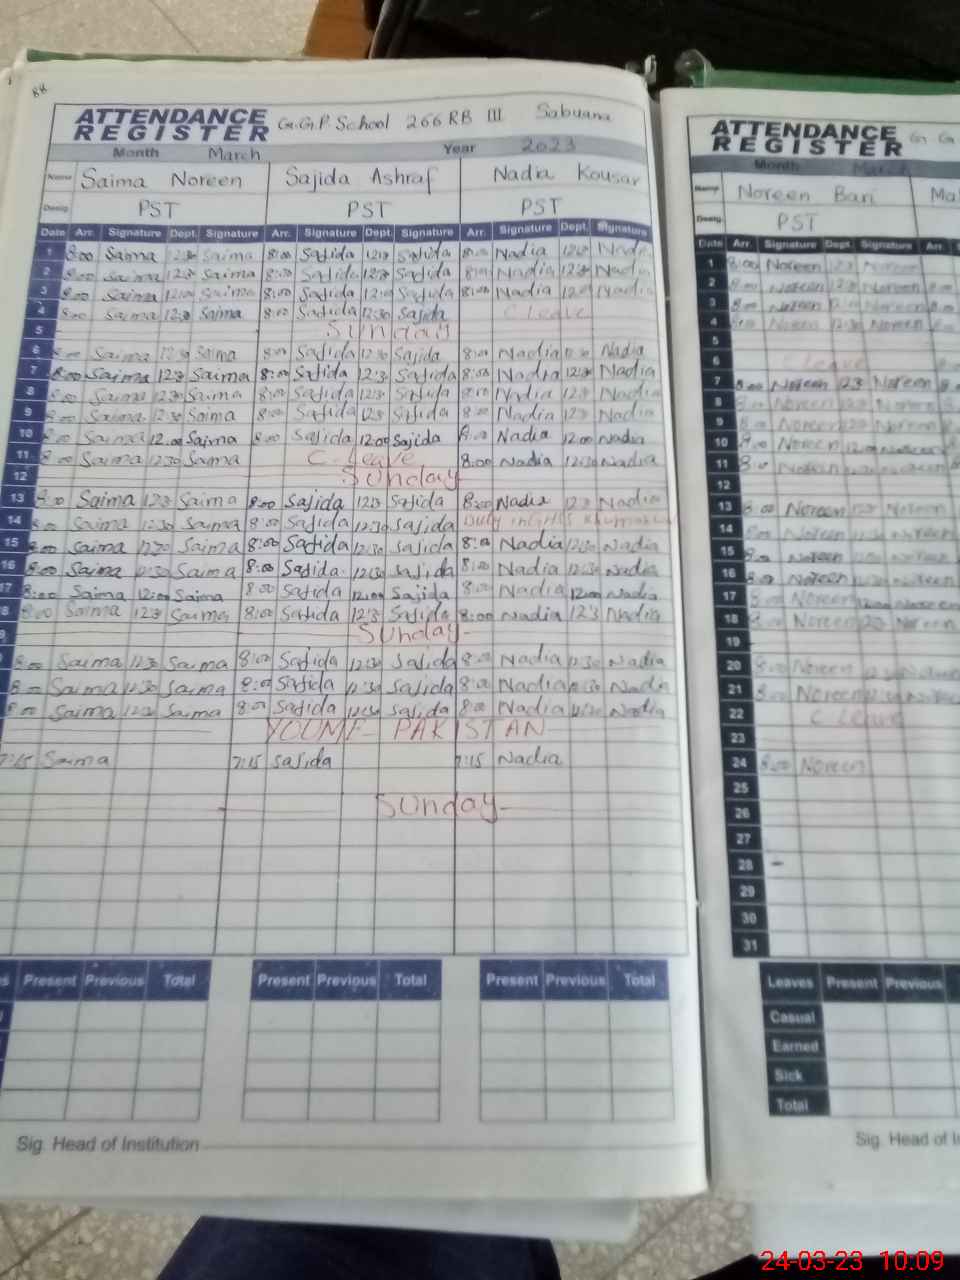 88
ATTENDANCE REGISTER G.G.P. School 266 RB III Sabuana
Month March Year 2023
Name Saima Noreen Sajida Ashraf Nadia Kousar
Desig. PST PST PST
Date Arr. Signature Dept. Signature Arr. Signature Dept. Signature Arr. Signature Dept. Signature
1 8:00 Saima 12:30 Saima 8:00 Sajida 12:30 Sajida 8:00 Nadia 12:30 Nadia
2 8:00 Saima 12:30 Saima 8:00 Sajida 12:30 Sajida 8:00 Nadia 12:30 Nadia
3 8:00 Saima 12:00 Saima 8:00 Sajida 12:00 Sajida 8:00 Nadia 12:00 Nadia
4 8:00 Saima 12:30 Saima 8:00 Sajida 12:30 Sajida C Leave
5 Sunday
6 8:00 Saima 12:30 Saima 8:00 Sajida 12:30 Sajida 8:00 Nadia 12:30 Nadia
7 8:00 Saima 12:30 Saima 8:00 Sajida 12:30 Sajida 8:00 Nadia 12:30 Nadia
8 8:00 Saima 12:30 Saima 8:00 Sajida 12:30 Sajida 8:00 Nadia 12:30 Nadia
9 8:00 Saima 12:30 Saima 8:00 Sajida 12:30 Sajida 8:00 Nadia 12:30 Nadia
10 8:00 Saima 12:00 Saima 8:00 Sajida 12:00 Sajida 8:00 Nadia 12:00 Nadia
11 8:00 Saima 12:30 Saima C. Leave 8:00 Nadia 12:30 Nadia
12 Sunday
13 8:00 Saima 12:30 Saima 8:00 Sajida 12:30 Sajida 8:00 Nadia 12:30 Nadia
14 8:00 Saima 12:30 Saima 8:00 Sajida 12:30 Sajida Duty in GHS
15 8:00 Saima 12:30 Saima 8:00 Sajida 12:30 Sajida 8:00 Nadia 12:30 Nadia
16 8:00 Saima 12:30 Saima 8:00 Sajida 12:30 Sajida 8:00 Nadia 12:30 Nadia
17 8:00 Saima 12:00 Saima 8:00 Sajida 12:00 Sajida 8:00 Nadia 12:00 Nadia
8 8:00 Saima 12:30 Saima 8:00 Sajida 12:30 Sajida 8:00 Nadia 12:3 Nadia
9 Sunday
8:00 Saima 12:30 Saima 8:00 Sajida 12:30 Sajida 8:00 Nadia 12:30 Nadia
8:00 Saima 12:30 Saima 8:00 Sajida 12:30 Sajida 8:00 Nadia 12:30 Nadia
8:00 Saima 12:30 Saima 8:00 Sajida 12:30 Sajida 8:00 Nadia 12:30 Nadia
YOUME PAKISTAN
7:15 Saima 7:15 Sajida 7:15 Nadia
Sunday
Present Previous Total Present Previous Total Present Previous Total
Sig. Head of Institution
ATTENDANCE REGISTER G. G
Month March
Name Noreen Bari
Desig. PST
Date Arr. Signature Dept. Signature Arr
1 8:00 Noreen 12:30 Noreen
2 8:00 Noreen 12:30 Noreen
3 8:00 Noreen 12:00 Noreen
4 8:00 Noreen 12:30 Noreen
5
6 C Leave
7 8:00 Noreen 12:30 Noreen
8 8:00 Noreen 12:30 Noreen
9 8:00 Noreen 12:30 Noreen
10 8:00 Noreen 12:00 Noreen
11 8:00 Noreen 12:30 Noreen
12
13 8:00 Noreen 12:30 Noreen
14 8:00 Noreen 12:30 Noreen
15 8:00 Noreen 12:30 Noreen
16 8:00 Noreen 12:30 Noreen
17 8:00 Noreen 12:00 Noreen
18 8:00 Noreen 12:30 Noreen
19
20 8:00 Noreen 12:30 Noreen
21 8:00 Noreen 12:30 Noreen
22 C Leave
23
24 8:00 Noreen
25
26
27
28
29
30
31
Leaves Present Previous
Casual
Earned
Sick
Total
Sig. Head of
24-03-23 10:09